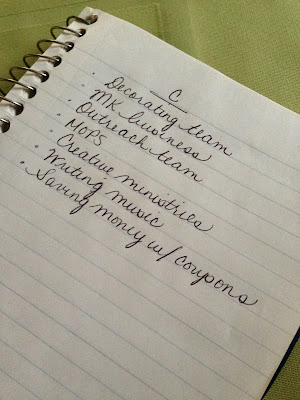 C
· Decorating team
· MK business
· Outreach team
· MOPS
· Creative ministries
· Writing music
· Saving money w/ coupons